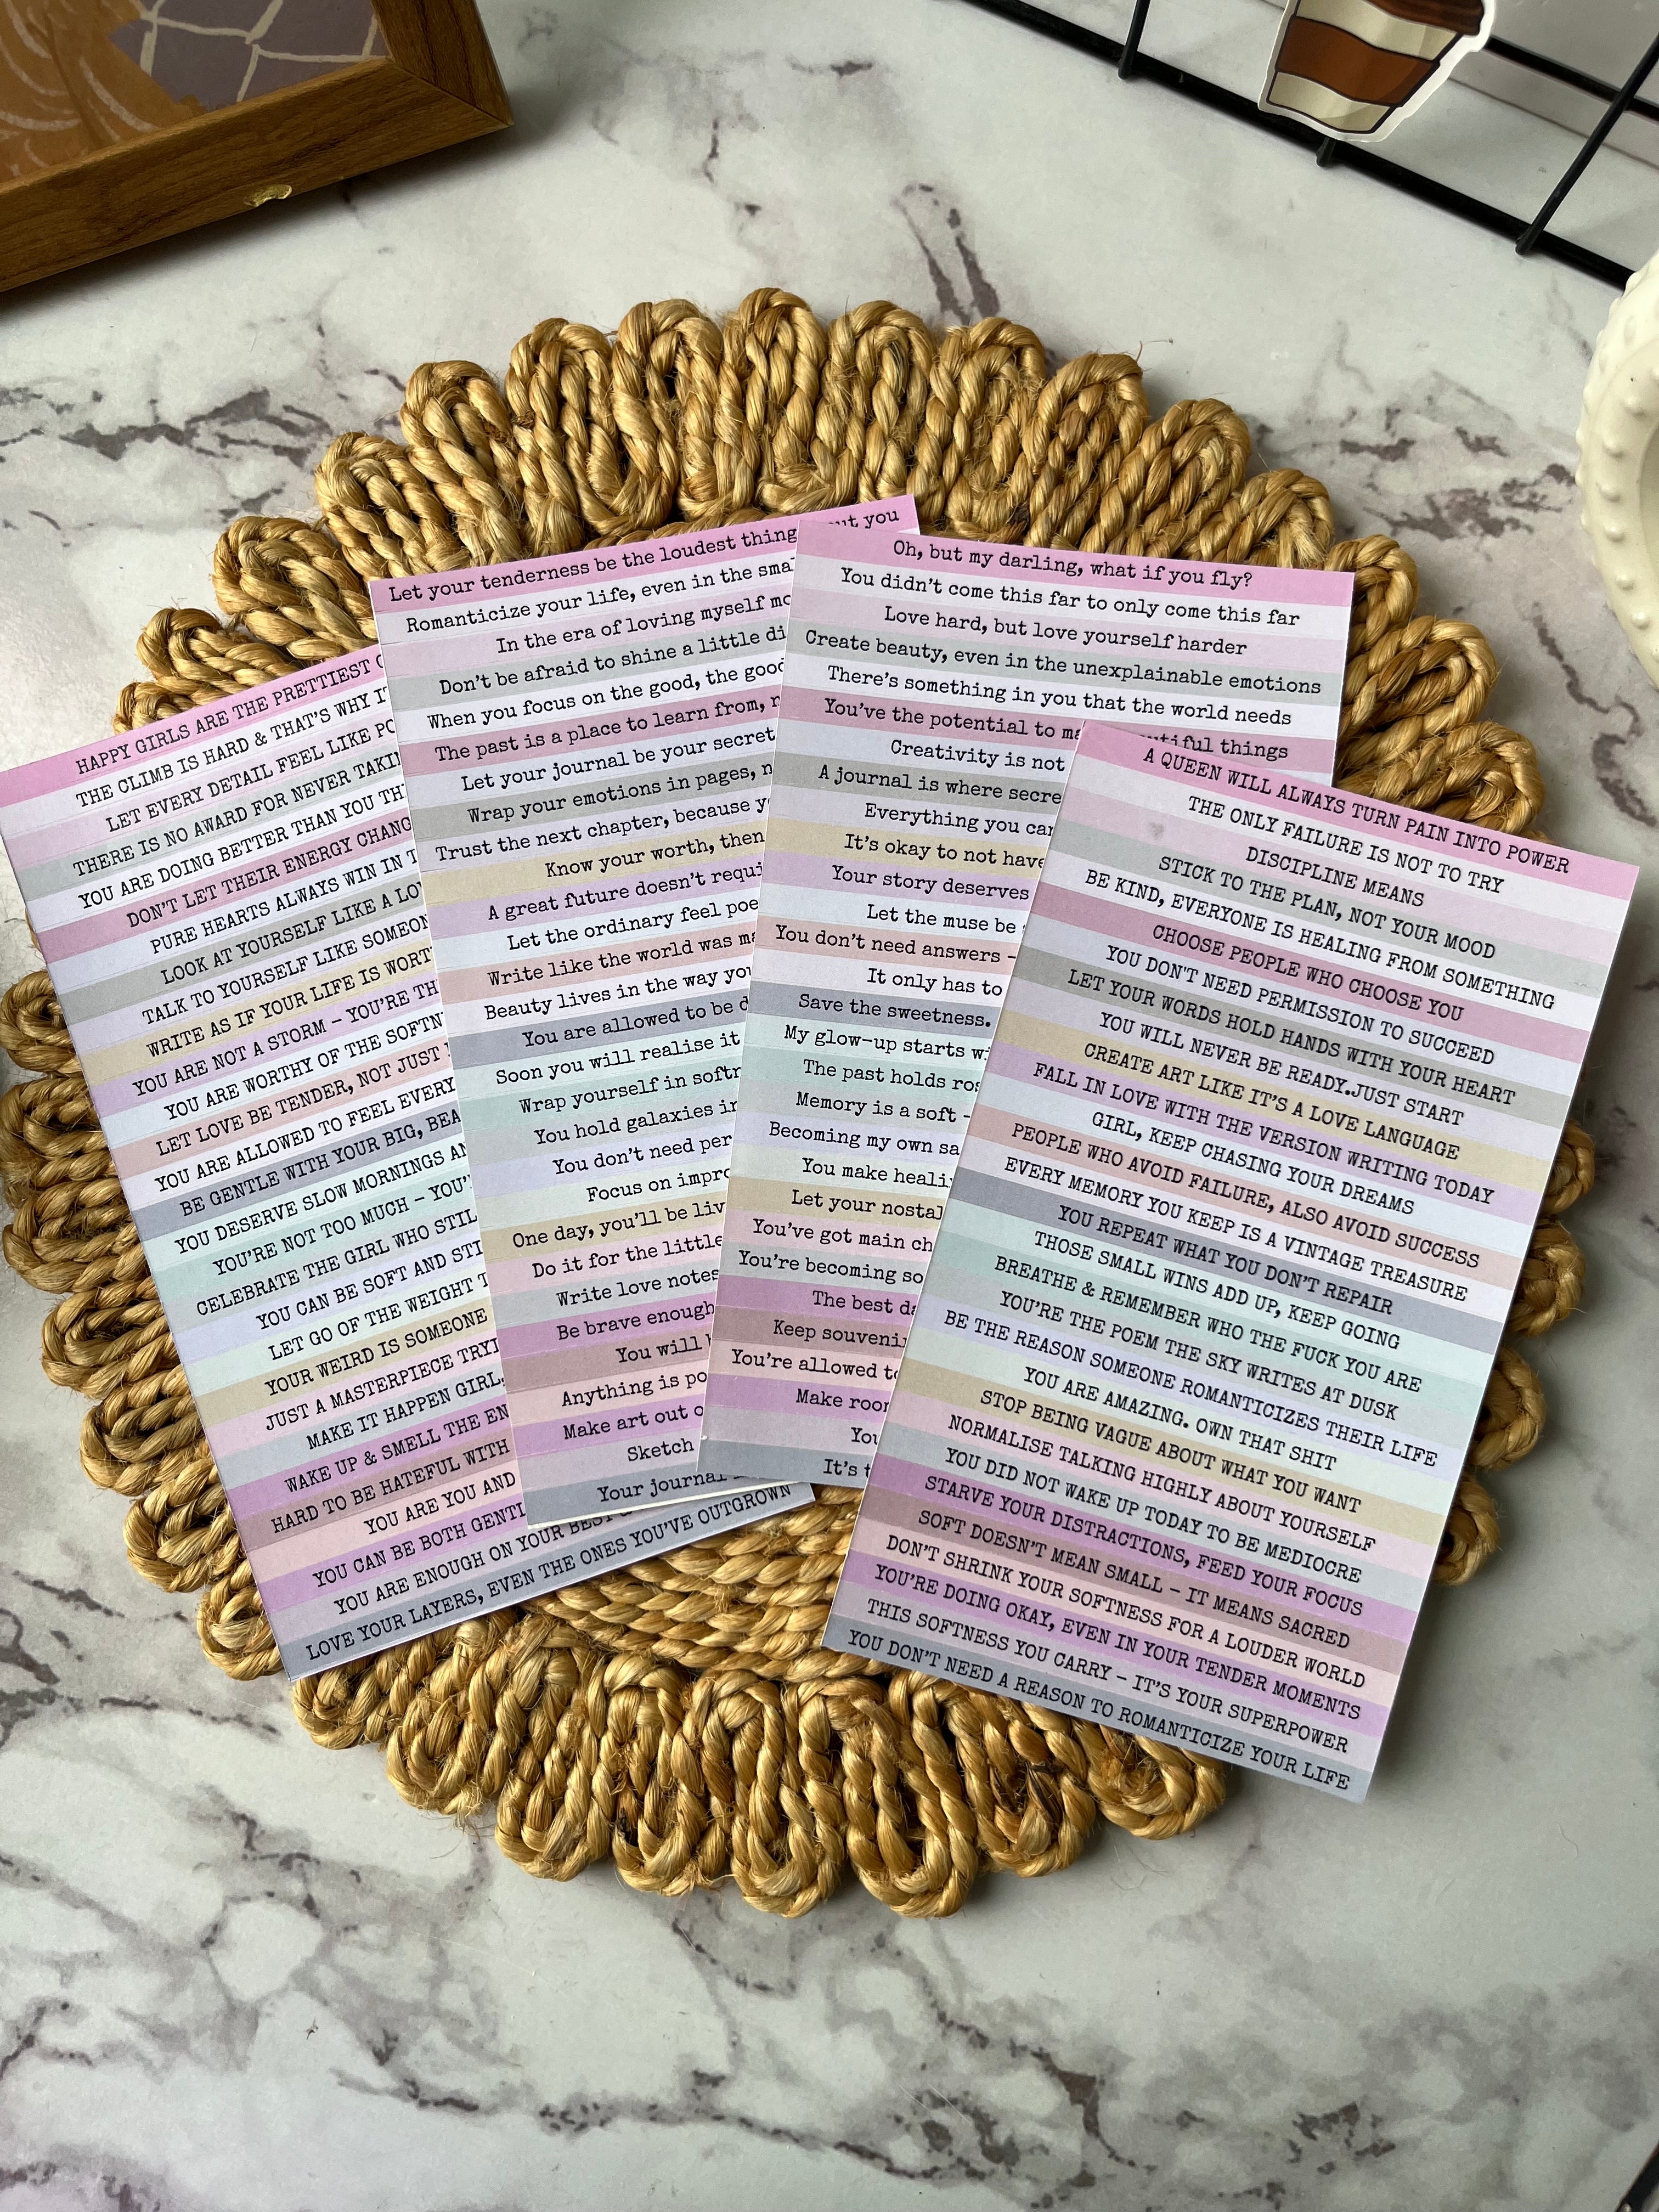 HAPPY GIRLS ARE THE PRETTIEST
THE CLIMB IS HARD & THAT'S WHY
LET EVERY DETAIL FEEL LIKE
THERE IS NO AWARD FOR NEVER
YOU ARE DOING BETTER THAN YOU
DON'T LET THEIR ENERGY
PURE HEARTS ALWAYS WIN IN
LOOK AT YOURSELF LIKE A
TALK TO YOURSELF LIKE
WRITE AS IF YOUR LIFE IS
YOU ARE NOT A STORM – YOU'RE
YOU ARE WORTHY OF THE
LET LOVE BE TENDER, NOT JUST
YOU ARE ALLOWED TO FEEL
BE GENTLE WITH YOUR BIG,
YOU DESERVE SLOW MORNINGS
YOU'RE NOT TOO MUCH –
CELEBRATE THE GIRL WHO
YOU CAN BE SOFT AND
LET GO OF THE WEIGHT
YOUR WEIRD IS SOMEONE
JUST A MASTERPIECE
MAKE IT HAPPEN GIRL,
WAKE UP & SMELL THE
HARD TO BE HATEFUL WITH
YOU ARE YOU AND
YOU CAN BE BOTH
YOU ARE ENOUGH ON YOUR BEST
LOVE YOUR LAYERS, EVEN THE ONES YOU'VE OUTGROWN
Let your tenderness be the loudest you
Romanticize your life, even in the
In the era of loving myself
Don't be afraid to shine a little
When you focus on the good, the
The past is a place to learn from,
Let your journal be your secret
Wrap your emotions in pages,
Trust the next chapter, because
Know your worth, then
A great future doesn't
Let the ordinary feel
Write like the world was
Beauty lives in the way
You are allowed to be
Soon you will realise it
Wrap yourself in
You hold galaxies
You don't need
Focus on
One day, you'll be
Do it for the little
Write love notes
Be brave enough
You will
Anything is
Make art out
Sketch
Your journal
Oh, but my darling, what if you fly?
You didn't come this far to only come this far
Love hard, but love yourself harder
Create beauty, even in the unexplainable emotions
There's something in you that the world needs
You've the potential to things
Creativity is not
A journal is where
Everything you
It's okay to not
Your story deserves
Let the muse be
You don't need answers –
It only has to
Save the sweetness.
My glow-up starts
The past holds
Memory is a soft –
Becoming my own
You make
Let your
You've got main
You're becoming
The best
Keep
You're allowed
Make
It's
A QUEEN WILL ALWAYS TURN PAIN INTO POWER
THE ONLY FAILURE IS NOT TO TRY
DISCIPLINE MEANS
STICK TO THE PLAN, NOT YOUR MOOD
BE KIND, EVERYONE IS HEALING FROM SOMETHING
CHOOSE PEOPLE WHO CHOOSE YOU
YOU DON'T NEED PERMISSION TO SUCCEED
LET YOUR WORDS HOLD HANDS WITH YOUR HEART
YOU WILL NEVER BE READY.JUST START
CREATE ART LIKE IT'S A LOVE LANGUAGE
FALL IN LOVE WITH THE VERSION WRITING TODAY
GIRL, KEEP CHASING YOUR DREAMS
PEOPLE WHO AVOID FAILURE, ALSO AVOID SUCCESS
EVERY MEMORY YOU KEEP IS A VINTAGE TREASURE
YOU REPEAT WHAT YOU DON'T REPAIR
THOSE SMALL WINS ADD UP, KEEP GOING
BREATHE & REMEMBER WHO THE FUCK YOU ARE
YOU'RE THE POEM THE SKY WRITES AT DUSK
BE THE REASON SOMEONE ROMANTICIZES THEIR LIFE
YOU ARE AMAZING. OWN THAT SHIT
STOP BEING VAGUE ABOUT WHAT YOU WANT
NORMALISE TALKING HIGHLY ABOUT YOURSELF
YOU DID NOT WAKE UP TODAY TO BE MEDIOCRE
STARVE YOUR DISTRACTIONS, FEED YOUR FOCUS
SOFT DOESN'T MEAN SMALL – IT MEANS SACRED
DON'T SHRINK YOUR SOFTNESS FOR A LOUDER WORLD
YOU'RE DOING OKAY, EVEN IN YOUR TENDER MOMENTS
THIS SOFTNESS YOU CARRY – IT'S YOUR SUPERPOWER
YOU DON'T NEED A REASON TO ROMANTICIZE YOUR LIFE